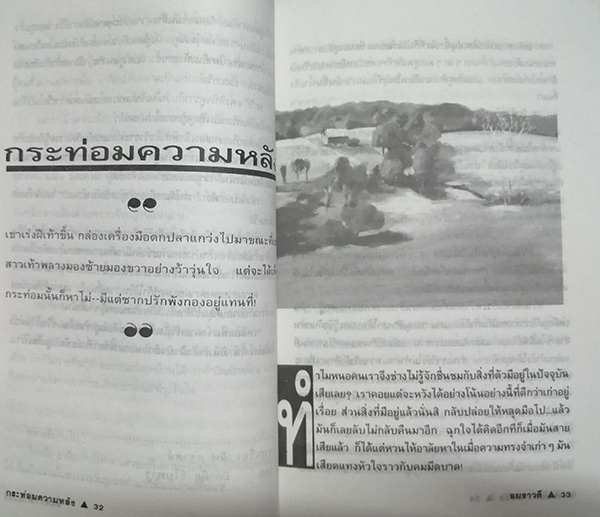 กระท่อมความหลัง
เขาเร่งฝีเท้าขึ้น กล่องเครื่องมือตกปลาแกว่งไปมาขณะที่
สาวเท้าพลางมองซ้ายมองขวาอย่างว้าวุ่นใจ แต่จะได้
กระท่อมนั้นก็หาไม่--มีแต่ซากปรักพังกองอยู่แทนที่!
กระท่อมความหลัง ▲ 32
ทำไมหนอคนเราจึงช่างไม่รู้จักชื่นชมกับสิ่งที่ตัวมีอยู่ในปัจจุบัน
เสียเลยๆ เราคอยแต่จะหวังได้อย่างโน้นอย่างนี้ที่ดีกว่าเก่าอยู่
เรื่อย ส่วนสิ่งที่มีอยู่แล้วนั่นสิ กลับปล่อยให้หลุดมือไป...แล้ว
มันก็เลยลับไม่กลับคืนมาอีก ฉุกใจได้คิดอีกทีก็เมื่อมันสาย
เสียแล้ว ก็ได้แต่หวนให้อาลัยหาในเมื่อความทรงจำเก่า ๆ มัน
เสียดแทงหัวใจราวกับคมมีดบาด!
อมราวดี ▲ 33